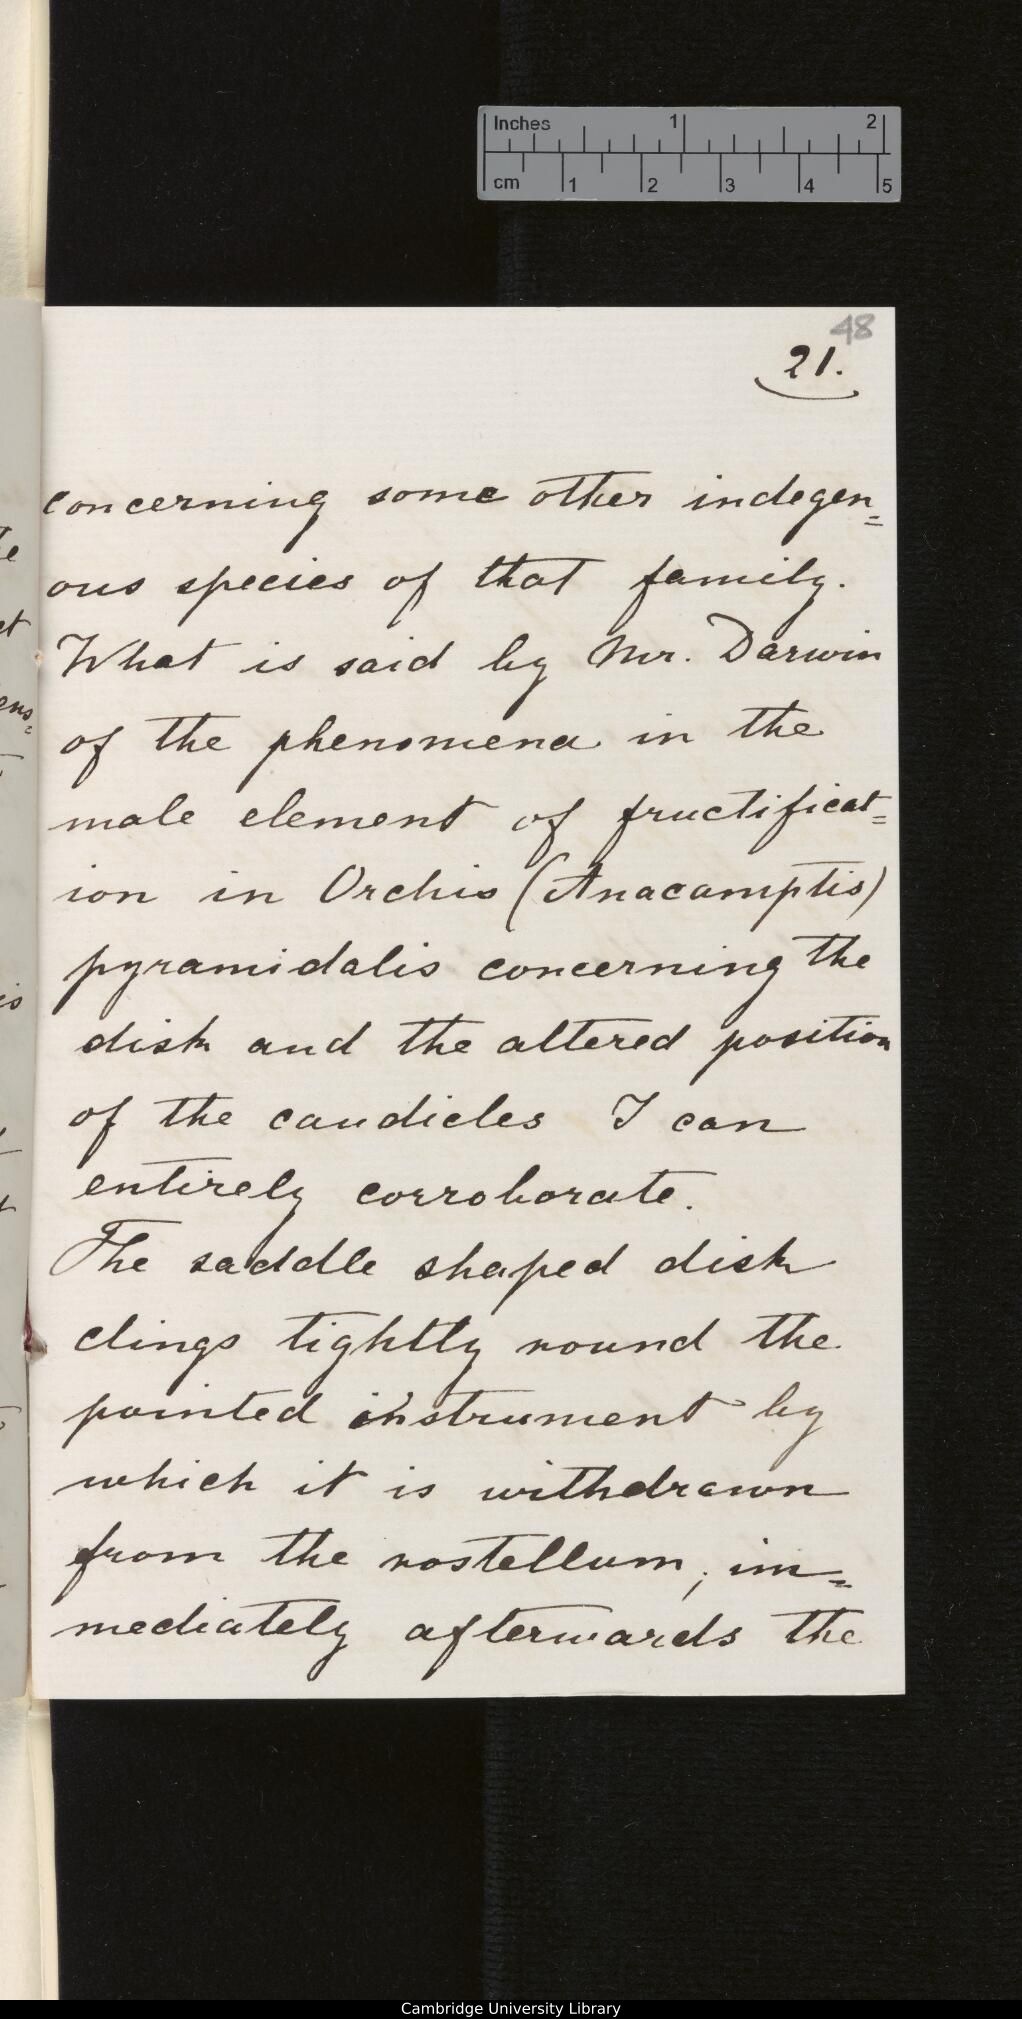 Inches 1 2
cm 1 2 3 4 5
48
21.
concerning some other indegen=
ous species of that family.
What is said by Mr. Darwin
of the phenomena in the
male element of fructificat=
ion in Orchis (Anacamptis)
pyramidalis concerning the
disk and the altered position
of the caudicles I can
entirely corroborate.
The saddle shaped disk
clings tightly round the
pointed instrument by
which it is withdrawn
from the rostellum, im=
mediately afterwards the
Cambridge University Library